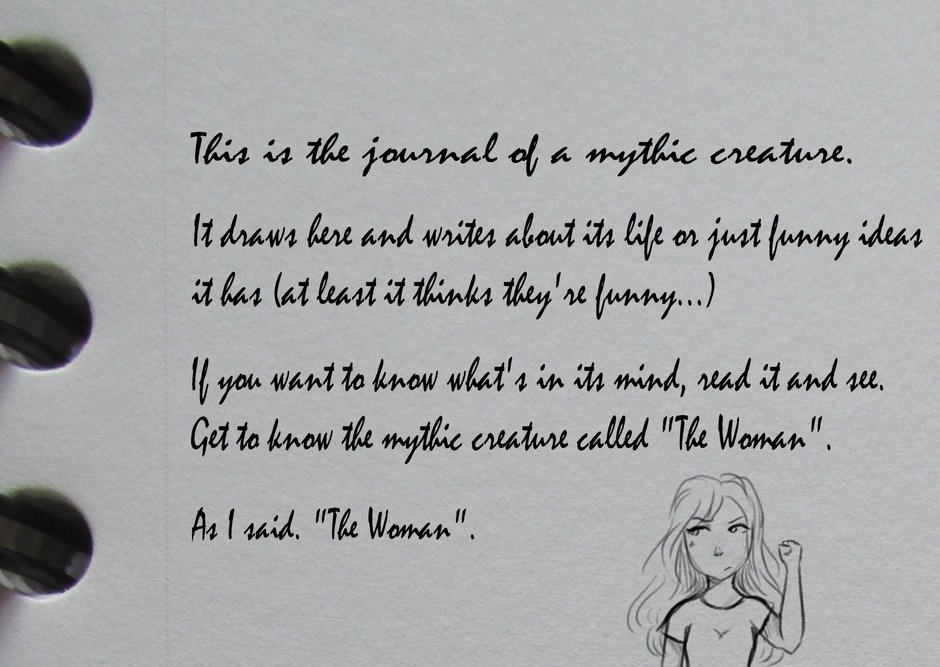 This is the journal of a mythic creature.
It draws here and writes about its life or just funny ideas
it has (at least it thinks they're funny...)
If you want to know what's in its mind, read it and see.
Get to know the mythic creature called "The Woman".
As I said. "The Woman".